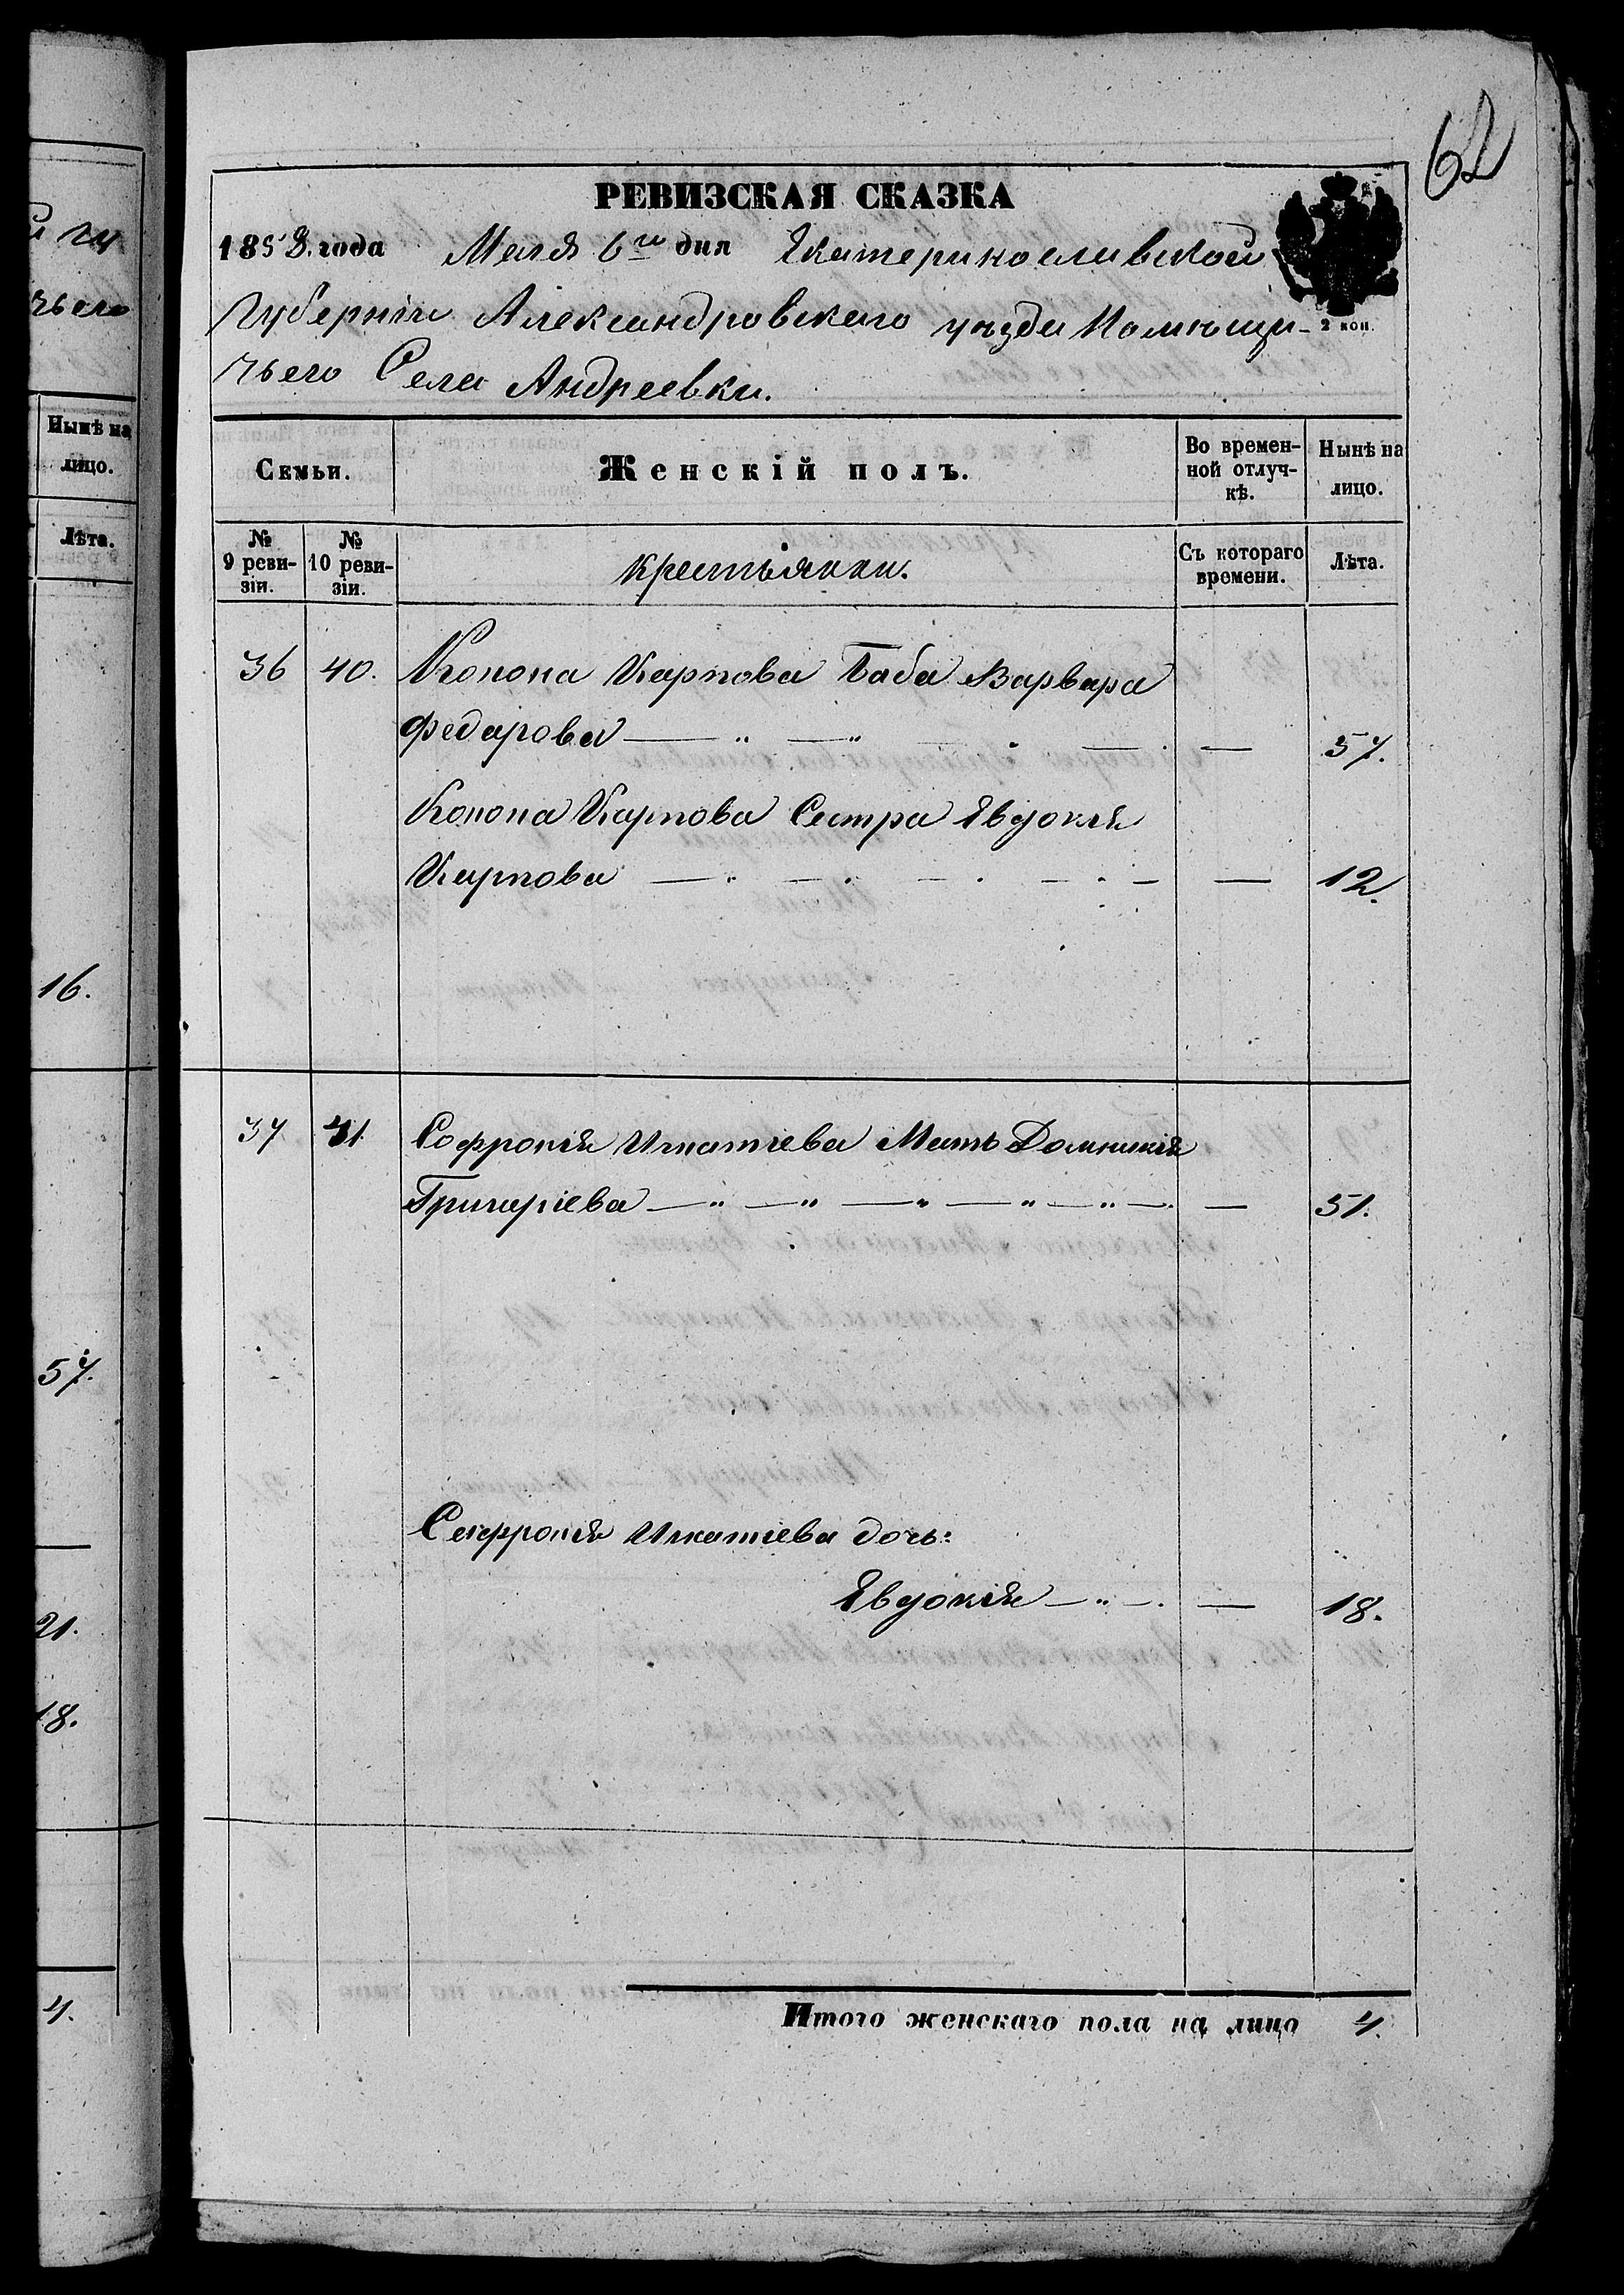 62
РЕВИЗСКАЯ СКАЗКА
1858. года Мая 6го дня Екатеринославской
Губерніи Александровского уѣзда Помѣщи-
чьего Села Андреевки.
2 коп.
Семьи.
Женскій полъ.
Во времен-
ной отлуч-
кѣ.
Нынѣ на
лицо.
№
9 реви-
зіи.
№
10 реви-
зіи.
крестьянки.
Съ котораго
времени.
Лѣта.
36 40. Конона Карпова Баба Варвара
Федарова — " — " — " — . — 57.
Конона Карпова Сестра Евдокія
Карпова — . — . — . — . — — 12.
37 41. Софронія Игнатіева Мать Домникія
Григаріева — " — " — " — " — " — . — 51.
Софронія Игнатіева дочь:
Евдокія — " — . — 18.
Итого женскаго пола на лицо 4.
чьего
Нынѣ на
лицо.
Лѣта.
16.
57.
21.
18.
4.